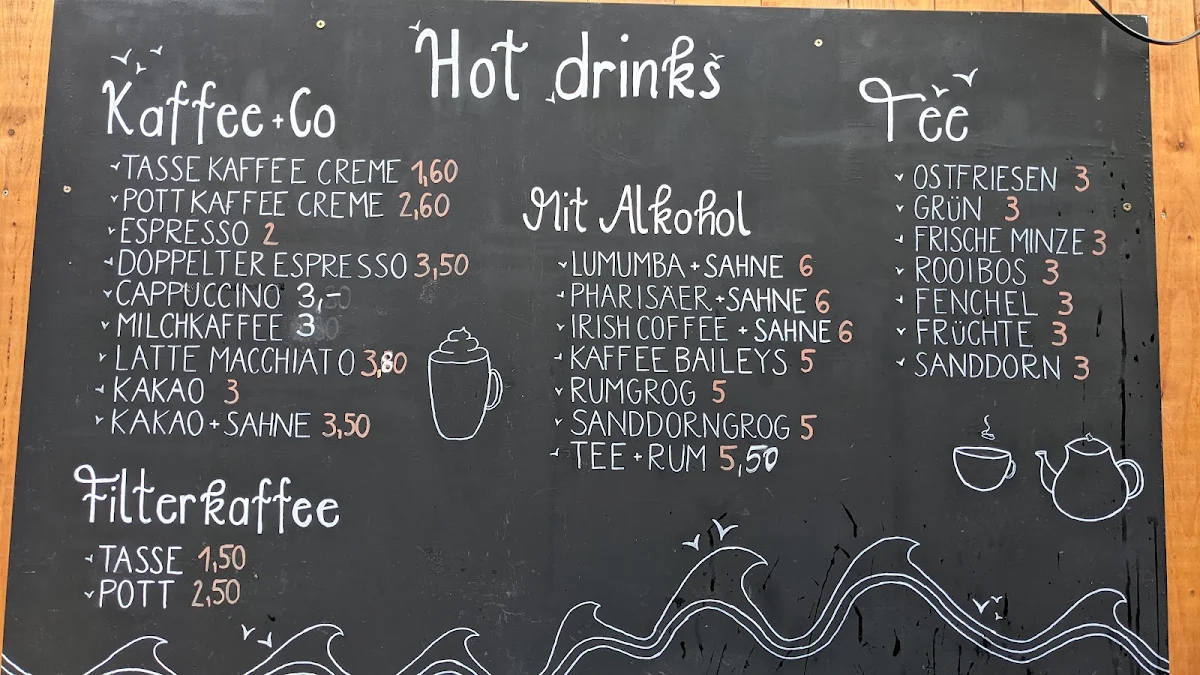 Hot drinks
Kaffee + Co
TASSE KAFFEE CREME 1,60
POTT KAFFEE CREME 2,60
ESPRESSO 2
DOPPELTER ESPRESSO 3,50
CAPPUCCINO 3,-
MILCHKAFFEE 3
LATTE MACCHIATO 3,80
KAKAO 3
KAKAO + SAHNE 3,50
Filterkaffee
TASSE 1,50
POTT 2,50
Mit Alkohol
LUMUMBA + SAHNE 6
PHARISÄER + SAHNE 6
IRISH COFFEE + SAHNE 6
KAFFEE BAILEYS 5
RUMGROG 5
SANDDORNGROG 5
TEE + RUM 5,50
Tee
OSTFRIESEN 3
GRÜN 3
FRISCHE MINZE 3
ROOIBOS 3
FENCHEL 3
FRÜCHTE 3
SANDDORN 3